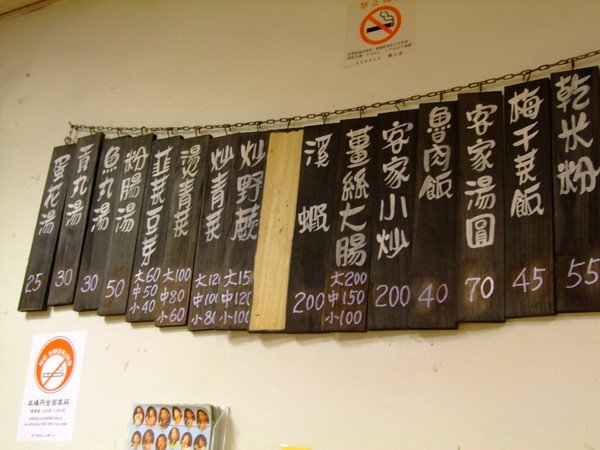 乾米粉
55
梅干菜飯
45
客家湯圓
70
魯肉飯
40
客家小炒
200
薑絲大腸
大200
中150
小100
溪蝦
200
炒野蕨
大150
中120
小100
炒青菜
大120
中100
小80
燙青菜
大100
中80
小60
韮菜豆芽
大60
中50
小40
粉腸湯
50
魚丸湯
30
貢丸湯
30
蛋花湯
25
NO SMOKING
本場所全面禁菸